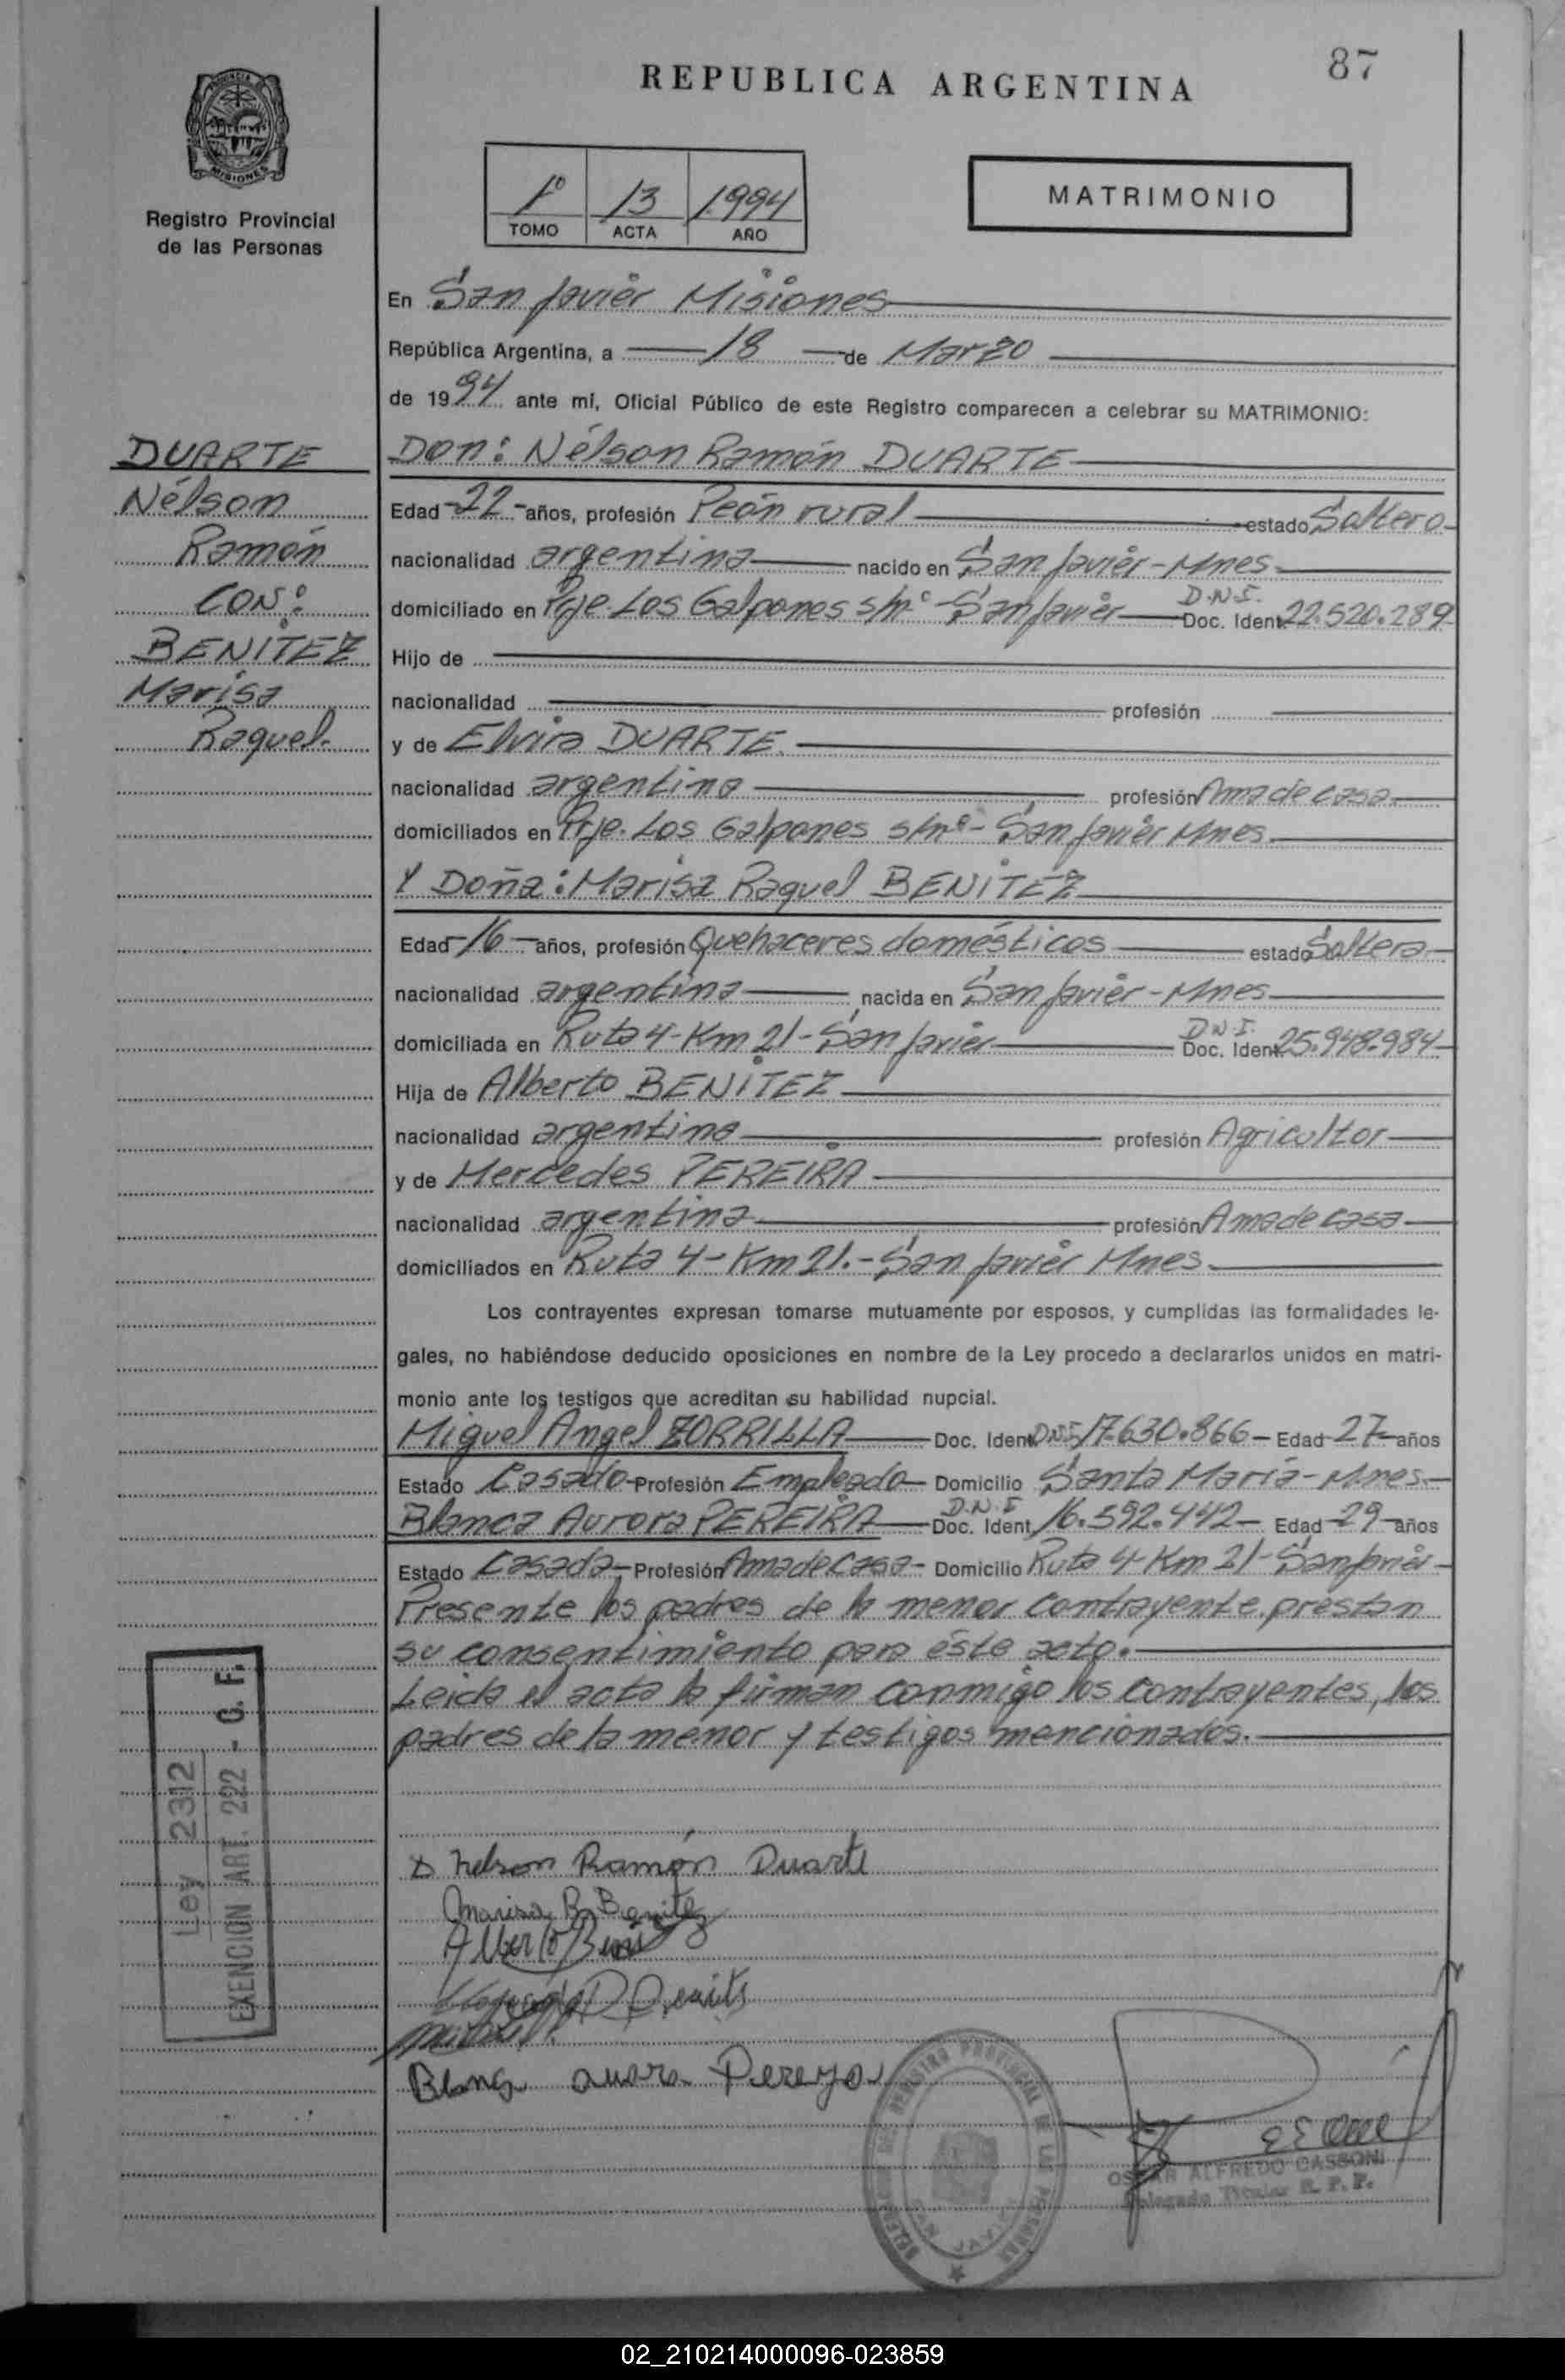 87
REPUBLICA ARGENTINA
PROVINCIA
MISIONES
Registro Provincial
de las Personas
1º 13 1994
TOMO ACTA AÑO
MATRIMONIO
En San Javier Misiones
República Argentina, a 18 de Marzo
de 1994 ante mí, Oficial Público de este Registro comparecen a celebrar su MATRIMONIO:
DUARTE
Nélson
Ramón
CON:
BENITEZ
Marisa
Raquel.
Don: Nélson Ramón DUARTE
Edad -22- años, profesión Peón rural estado Soltero
nacionalidad argentina nacido en San Javier - Mnes.
domiciliado en Pje. Los Galpones s/nº - San Javier D.N.I. Doc. Ident. 22.520.289
Hijo de
nacionalidad profesión
y de Elvira DUARTE.
nacionalidad argentina profesión Ama de casa
domiciliados en Pje. Los Galpones s/nº - San Javier Mnes.
Y Doña: Marisa Raquel BENITEZ
Edad -16- años, profesión Quehaceres domésticos estado Soltera
nacionalidad argentina nacida en San Javier - Mnes
domiciliada en Ruta 4 - Km 21 - San Javier D.N.I. Doc. Ident. 25.948.984
Hija de Alberto BENITEZ
nacionalidad argentina profesión Agricultor
y de Mercedes PEREIRA
nacionalidad argentina profesión Ama de casa
domiciliados en Ruta 4 - Km 21. - San Javier Mnes.
Los contrayentes expresan tomarse mutuamente por esposos, y cumplidas las formalidades le-
gales, no habiéndose deducido oposiciones en nombre de la Ley procedo a declararlos unidos en matri-
monio ante los testigos que acreditan su habilidad nupcial.
Miguel Angel ZORRILLA Doc. Ident. D.N.I. 17.630.866 - Edad 27 años
Estado Casado Profesión Empleado Domicilio Santa María - Mnes.
Blanca Aurora PEREIRA D.N.I. Doc. Ident. 16.592.442 - Edad 29 años
Estado Casada - Profesión Ama de casa - Domicilio Ruta 4 Km 21 - San Javier
Presente los padres de la menor contrayente prestan
su consentimiento para éste acto.
Leida el acta la firman conmigo los contrayentes, los
padres de la menor y testigos mencionados.
Ley 2312
EXENCION ART. 222 - C. F.
Nelson Ramón Duarte
Marisa R. Benitez
Alberto Benitez
Blanca Pereyra
REGISTRO PROVINCIAL DE LAS PERSONAS
SAN JAVIER
OSCAR ALFREDO CASSONI
Delegado Titular R. P. P.
02_210214000096-023859